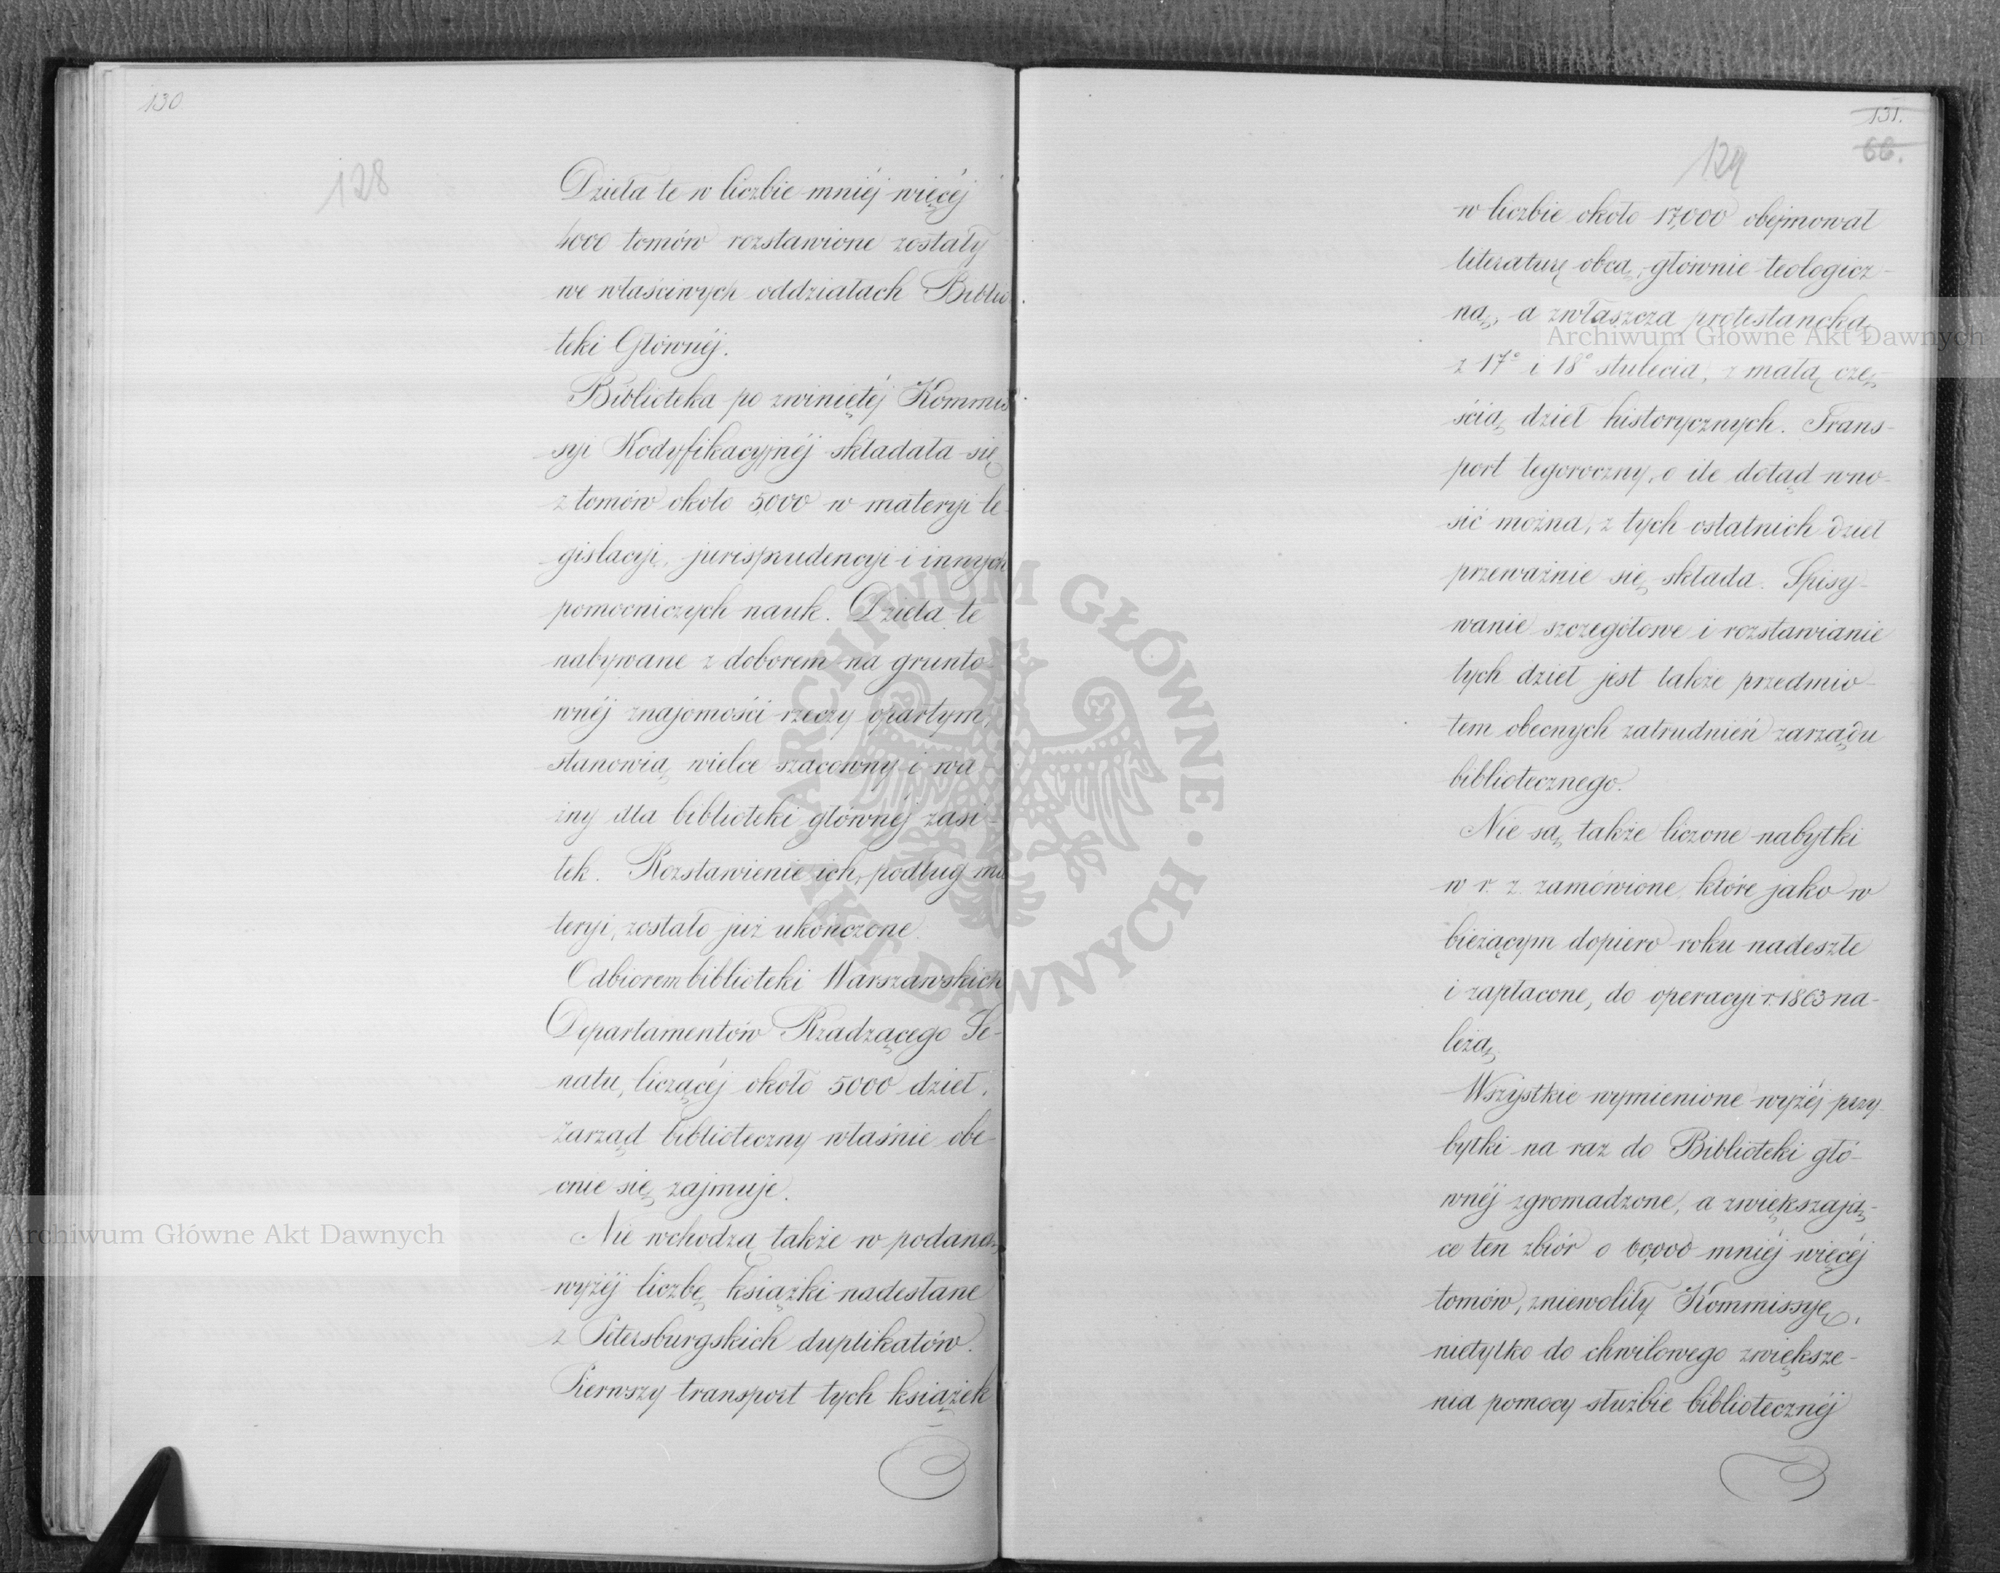 130
128
Dzieła te w liczbie mniéj więcéj
4000 tomów rozstawione zostały
we właściwych oddziałach Biblio-
teki Głównéj.
Biblioteka po zwiniętéj Kommis-
syi Kodyfikacyjnéj składała się
z tomów około 5,000 w materyi le-
gislacyi, jurisprudencyi i innych
pomocniczych nauk. Dzieła te
nabywane z doborem na grunto-
wnéj znajomości rzeczy opartym,
stanowią wielce szacowny i wa-
żny dla biblioteki głównéj zasi-
łek. Rozstawienie ich, podług ma-
teryi, zostało już ukończone.
Odbiorem biblioteki Warszawskich
Departamentów Rządzącego Se-
natu, liczącéj około 5000 dzieł,
zarząd biblioteczny właśnie obe-
cnie się zajmuje.
Nie wchodzą także w podaną
wyżéj liczbę książki nadesłane
z Petersburgskich duplikatów.
Pierwszy transport tych książek
131.
66.
129
w liczbie około 17,000 obejmował
literaturę obcą, głównie teologicz-
ną, a zwłaszcza protestancką
z 17o i 18o stulecia, z małą czę-
ścią dzieł historycznych. Trans-
port tegoroczny, o ile dotąd wno-
sić można, z tych ostatnich dzieł
przeważnie się składa. Spisy-
wanie szczegółowe i rozstawianie
tych dzieł jest także przedmio-
tem obecnych zatrudnień zarządu
bibliotecznego.
Nie są także liczone nabytki
w r. z. zamówione, które jako w
bieżącym dopiero roku nadeszłe
i zapłacone, do operacyi r. 1863 na-
leżą.
Wszystkie wymienione wyżéj przy-
bytki na raz do Biblioteki głó-
wnéj zgromadzone, a zwiększają-
ce ten zbiór o 60,000 mniéj więcéj
tomów, zniewoliły Kommissyę,
nietylko do chwilowego zwiększe-
nia pomocy służbie bibliotecznéj
Archiwum Główne Akt Dawnych
Archiwum Główne Akt Dawnych
ARCHIWUM GŁÓWNE AKT DAWNYCH